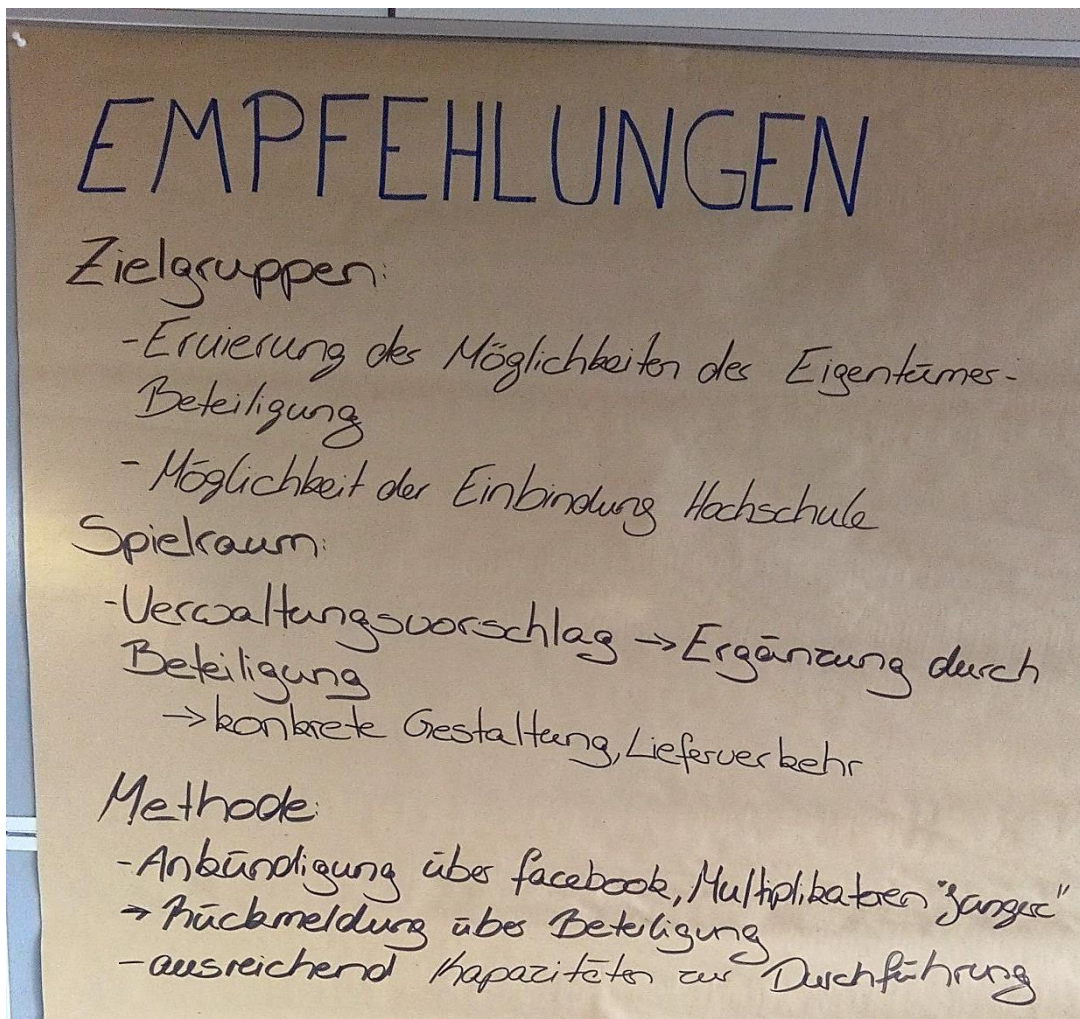 EMPFEHLUNGEN
Zielgruppen:
- Eruierung der Möglichkeiten der Eigentümer-
Beteiligung
- Möglichkeit der Einbindung Hochschule
Spielraum:
- Verwaltungsvorschlag → Ergänzung durch
Beteiligung
→ konkrete Gestaltung, Lieferverkehr
Methode:
- Ankündigung über facebook, Multiplikatoren
→ Rückmeldung über Beteiligung
- ausreichend Kapazitäten zur Durchführung